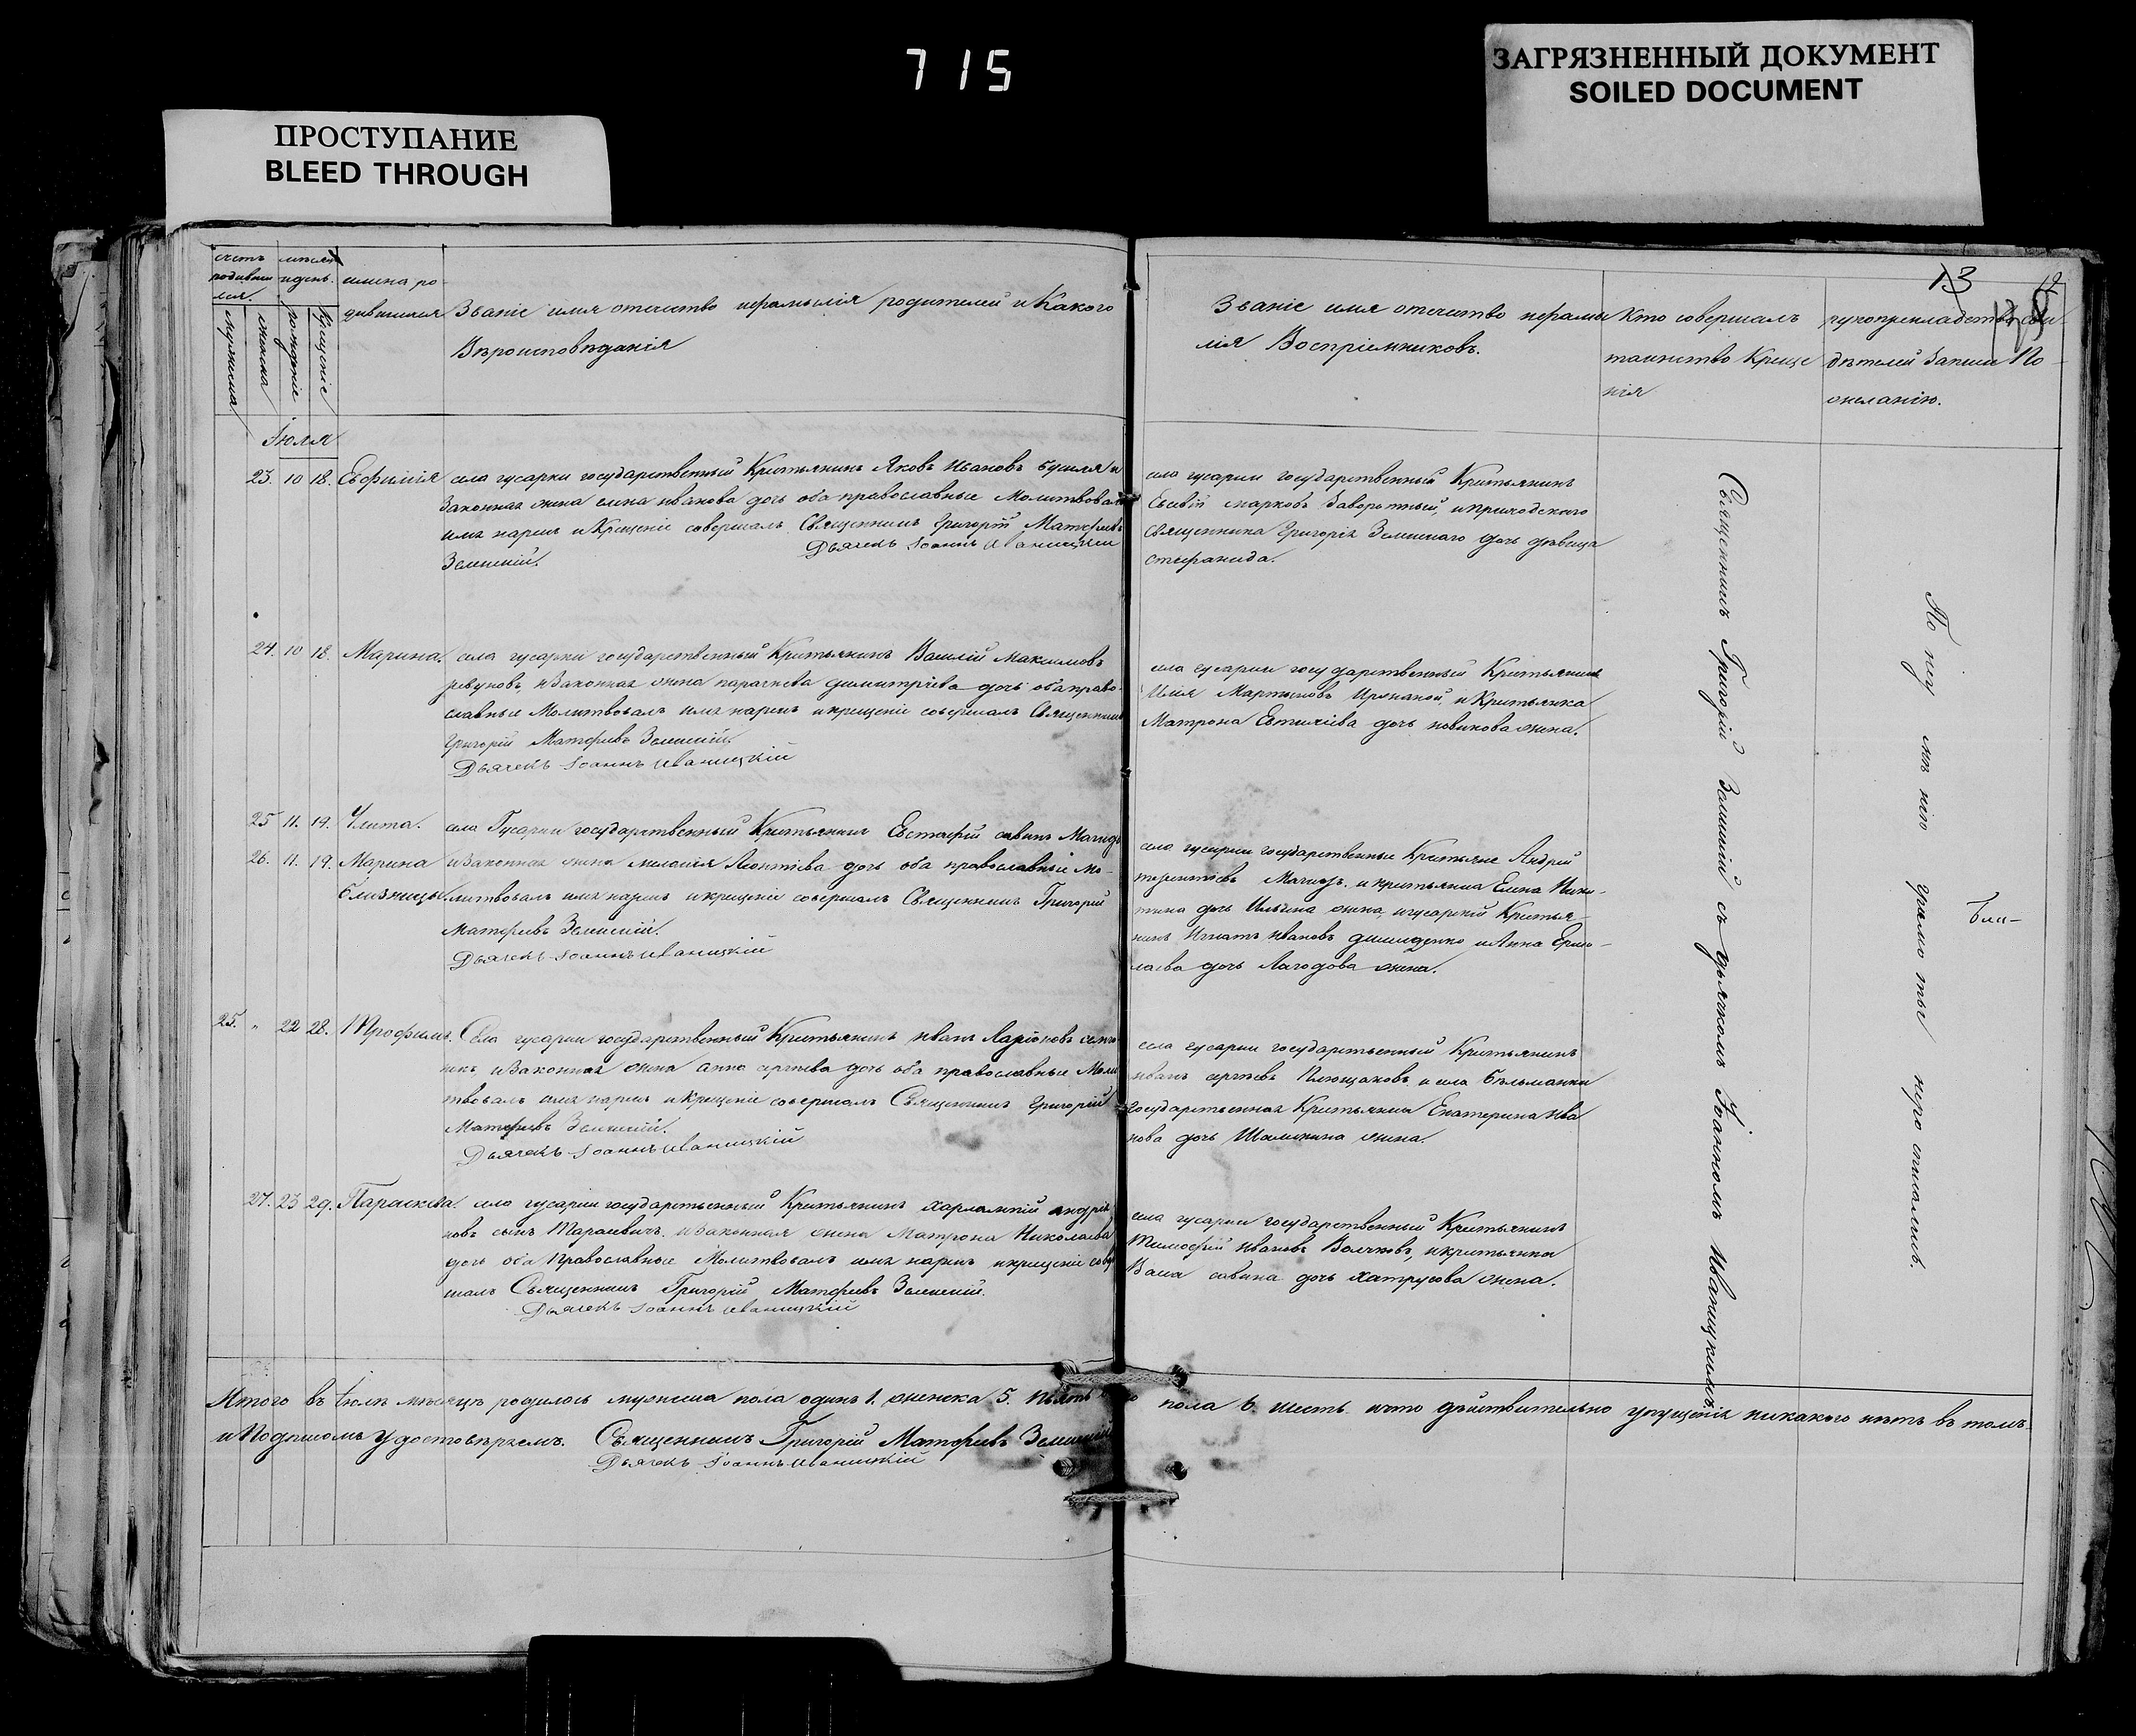 715
ПРОСТУПАНИЕ
BLEED THROUGH
ЗАГРЯЗНЕННЫЙ ДОКУМЕНТ
SOILED DOCUMENT
счетъ родившихся
мужеска
женска
рожденіе
крещеніе
имена родившихся
Званіе имя отечество и фамилія родителей и какого
Вѣроисповѣданія
Іюля
23. 10 18. Евфимія села гусарки государственный Крестьянинъ Яковъ Ивановъ и
Законная жена елена иванова дочь оба православные Молитвовалъ
имя нарекъ и Крещеніе совершалъ Священникъ Григорій Матфѣевъ
Зелинскій. Дьячекъ Іоаннъ Иваницкій
24. 10 18. Марина. села гусарки государственный Крестьянинъ Василій Максимовъ
ревуновъ, и Законная жена параскева димитріева дочь оба право-
славные Молитвовалъ имя нарекъ и крещеніе совершалъ Священникъ
Григорій Матфѣевъ Зелинскій.
Дьячекъ Іоаннъ Иваницкій
25 11. 19. Улита. села Гусарки государственный Крестьянинъ Евстафій савинъ
26. 11. 19. Марина и Законная жена меланія Леонтіева дочь оба православные Мо-
близницы. литвовалъ имя нарекъ и крещеніе совершалъ Священникъ Григорій
Матфѣевъ Зелинскій.
Дьячекъ Іоаннъ Иваницкій
25. " 22 28. Трофимъ. Села гусарки государственный Крестьянинъ иванъ Ларіоновъ
и Законная жена анна сергѣева дочь оба православные Моли
твовалъ имя нарекъ и Крещеніе совершалъ Священникъ Григорій
Матфѣевъ Зелинскій.
Дьячекъ Іоаннъ Иваницкій
27. 23 29. Параскева. села гусарки государственный Крестьянинъ харлампій андрія
новъ сынъ Тарасевичъ, и Законная жена Матрона Николаева
дочь оба Православные Молитвовалъ имя нарекъ и крещеніе совер
шалъ Священникъ Григорій Матфѣевъ Зелинскій.
Дьячекъ Іоаннъ Иваницкій
Итого въ Іюлѣ мѣсяцѣ родилось мужеска пола одинъ 1. женска 5. пять
и Подписомъ Удостовѣряемъ. Священникъ Григорій Матфѣевъ Зелинскій
Дьячекъ Іоаннъ Иваницкій
13
Званіе имя отечество и фами
лія Воспріемниковъ.
Кто совершалъ
таинство Креще
нія
рукоприкладство сви-
дѣтелей записи По
желанію.
села гусарки государственный Крестьянинъ
Евсевій марковъ Заворотный, и приходскаго
Священника Григорія Зелинскаго дочь дѣвица
стефанида.
села гусарки государственный Крестьянинъ
Илія Мартыновъ и Крестьянка
Матрона Евтихіева дочь новикова жена.
села гусарки государственные Крестьяне Андрей
терентіевъ и крестьянка Елена Ники-
тина дочь Ильина жена, и гусаркій Крестья-
нинъ Игнатъ Ивановъ и Анна Ермо-
лаева дочь Лагодова жена.
села гусарки государственный Крестьянинъ
иванъ сергѣевъ Плющаковъ и села бѣльманки
государственная Крестьянка Екатерина ива
нова дочь жена.
села гусарки государственный Крестьянинъ
Тимофей Ивановъ Волчковъ, и крестьянка
Васа савина дочь хатрусова жена.
Священникъ Григорій Зелинскій съ дьячкомъ Іоанномъ Иваницкимъ.
По не имѣнію грамоты не росписались.
пола 6. шесть и что дѣйствительно упущенія никакого нѣтъ въ томъ